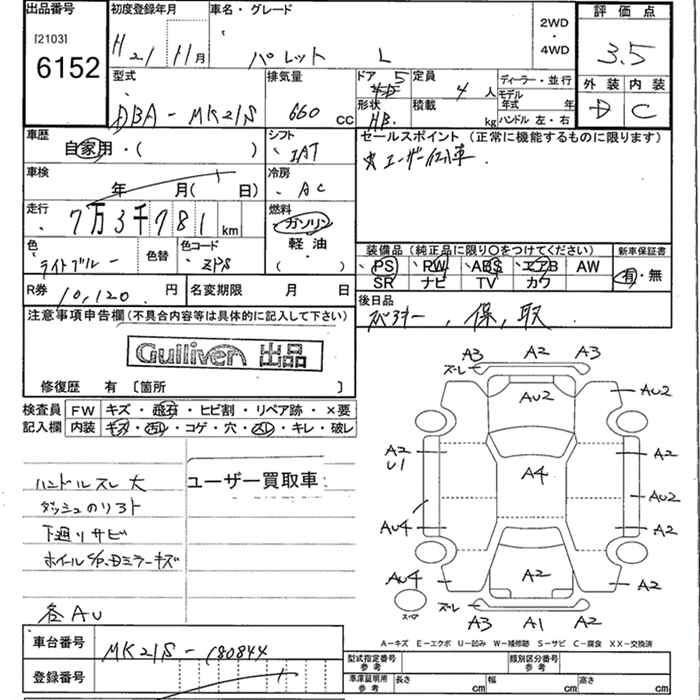 出品番号
[2103]
6152
初度登録年月
H21 11月
車名・グレード
パレット L
2WD
・
4WD
評価点
3.5
外装 内装
D C
型式
DBA-MK21S
排気量
660 cc
ドア 5
形状
HB
定員 4人
積載 kg
ディーラー・並行
モデル
年式 年
ハンドル 左・右
車歴
自家用・( )
シフト
IAT
セールスポイント(正常に機能するものに限ります)
車検
年 月( 日)
冷房
AC
走行
7万3千781km
燃料
ガソリン
軽油
( )
色
ライトブルー
色替
色コード
ZPS
装備品(純正品に限り○をつけてください)
PS RW ABS エアB AW
SR ナビ TV カワ
新車保証書
有・無
R券 10,120 円
名変期限 月 日
後日品
スペアキー, 保, 取
注意事項申告欄(不具合内容等は具体的に記入して下さい)
Gulliver 出品
修復歴 有 〔箇所 〕
検査員 FW キズ・飛石・ヒビ割・リペア跡・×要
記入欄 内装 キズ・汚れ・コゲ・穴・スレ・キレ・破レ
ハンドルスレ大
ユーザー買取車
ダッシュのりヨト
下廻りサビ
ホイールC/P・Dミラーキズ
各AU
A3 A2 A3
ズーレ
AU2 AU2
A2
U1
A4
A2
AU2
AU4 A2
AU4 A2 A2
スペア
ズーレ
A3 A1 A2
A-キズ E-エクボ U-凹み W-補修跡 S-サビ C-腐食 XX-交換済
車台番号 MK21S-180844
登録番号
型式指定番号
参考
類別区分番号
参考
車庫証明用
参考
長さ cm 幅 cm 高さ cm